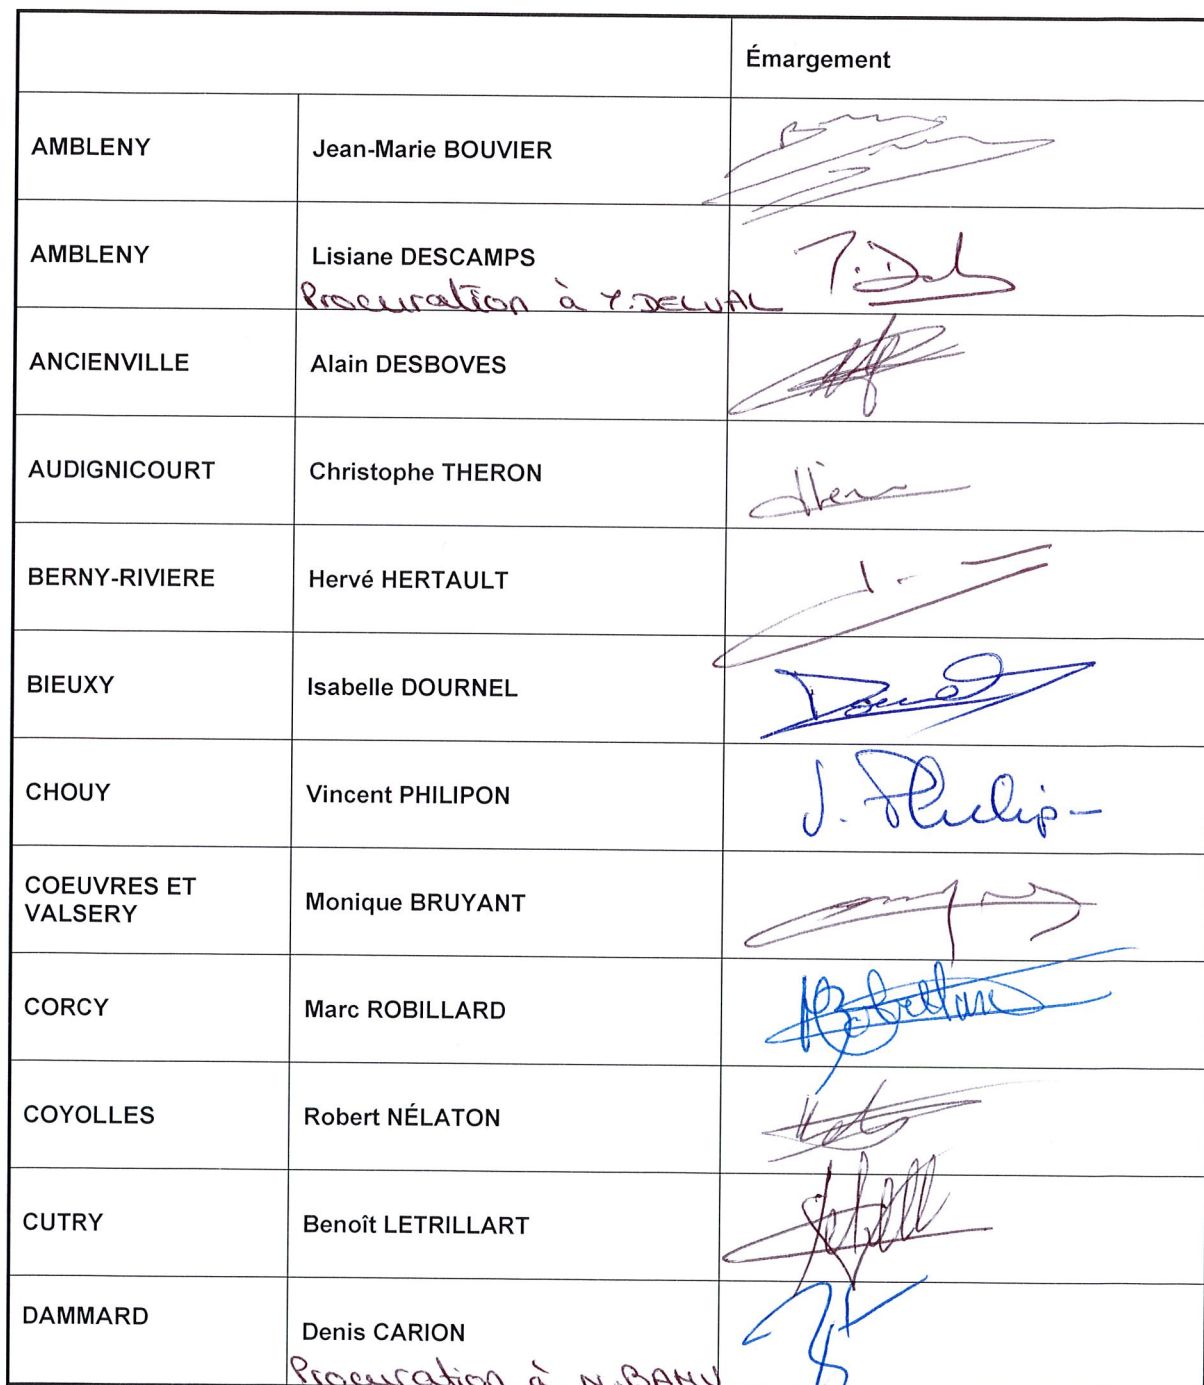 Émargement
AMBLENY Jean-Marie BOUVIER
AMBLENY Lisiane DESCAMPS
Procuration à Y. DELVAL
ANCIENVILLE Alain DESBOVES
AUDIGNICOURT Christophe THERON
BERNY-RIVIERE Hervé HERTAULT
BIEUXY Isabelle DOURNEL
CHOUY Vincent PHILIPON
COEUVRES ET
VALSERY Monique BRUYANT
CORCY Marc ROBILLARD
COYOLLES Robert NÉLATON
CUTRY Benoît LETRILLART
DAMMARD Denis CARION
Procuration à